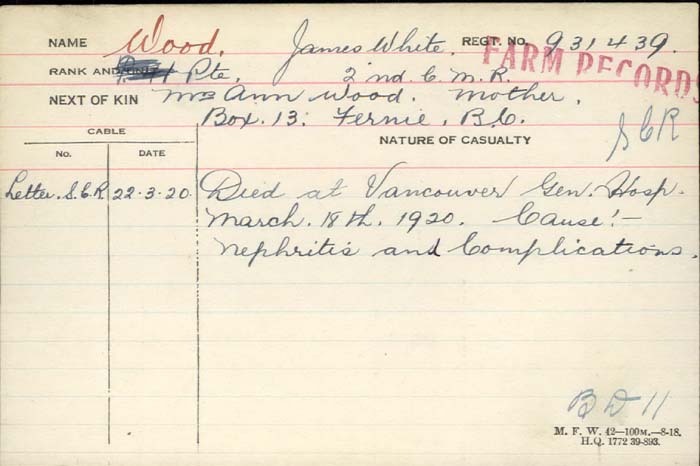 NAME Wood, James White. REGT. NO. 931439.
FARM RECORDS
RANK AND Pte, 2nd. C. M. R.
NEXT OF KIN Mrs Ann Wood. Mother.
Box. 13. Fernie, B.C.
S C R
CABLE
No. DATE
NATURE OF CASUALTY
Letter. S.C.R 22-3-20. Died at Vancouver Gen. Hosp.
March. 18th. 1920. Cause:-
Nephritis and Complications.
B D 11
M. F. W. 42—100M.—8-18.
H.Q. 1772 39-893.